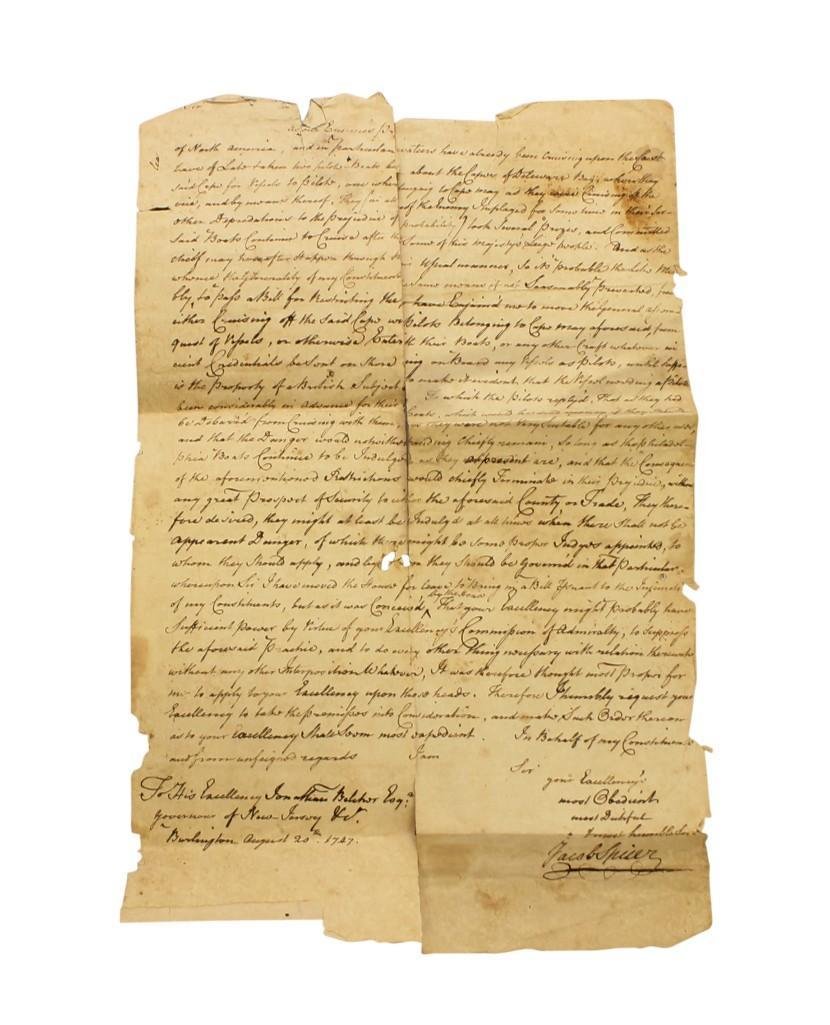 as our Enemies Pr
of North America, and in particular waters have already been Cruising upon the Coast
have of Late taken two pilot Boats be about the Capes of Delaware Bay, where they
said Cape for Vessels to Pilote, one wher longing to Cape may as they were Cruising off the
and by means thereof, They in all of the Enemy Imployed for Some time in their Ser-
other Depredations to the Prejudice of probability took Several Prizes, and Committed
Said Boats Continue to Cruise after the Some of his Majestys Leige people. And as the
chief may hereafter Happen through the Usual manner, So it's probable the like Mis
whence that Generality of my Constituents Same means if not Seasonably Prevented, from
bly, to pass a Bill for Restricting the have Enjoined me to move the General assem
either Cruising off the said Cape Pilots Belonging to Cape may aforesaid from
quest of Vessels, or otherwise Enter th their Boats, or any other Craft whatever in
cient Credentials be Sent on Shore ing on Board any Vessels as Pilots, until Suffi-
is the Property of a British Subject to make it evident, that the Vessel needing a Pilote
been considerably in advance for their To which the Pilots reply'd, That as they had
be Debared from Cruising with them, Boats, which would
and that the Danger would notwithst or they were not very Suitable for any other use,
phia Boats Continue to be Indulg'd anding Chiefly remain, So long as the Philadel-
of the aforementioned Restrictions as they at present are, and that the Consequen
any great Prospect of Security to either would chiefly Terminate in their Prejudice, without
fore desired, they might at least be the aforesaid County, or Trade, They there-
appearent Danger, of which there Indulg'd at all times when there Shall not be
whom they Should apply, and by might be Some Proper Judges appointed, to
whereupon Sir I have moved the House for Leave to Bring in a Bill Persuant to the Injuncti
of my Constituents, but as it was Conceiv'd by the House That your Excellency might Probably have
Sufficient power by Virtue of your Excellency's Commission of Admiralty, to Suppress
the aforesaid Practice, and to do every other Thing necessary with relation thereunto
without any other Interposition Whatever, It was therefore thought most Proper for
me to apply to your Excellency upon those heads. Therefore I humbly request your
Excellency to take the premisses into Consideration, and make Such Order thereon
as to your Excellency Shall Seem most expedient. In Behalf of my Constituents
and from unfeigned regards I am
Sir
your Excellency's
most Obedient
most Dutifull
& most humble Serv
Jacob Spicer
To His Excellency Jonathan Belcher Esqr.
Governour of New Jersey &c.
Burlington August 20th 1747.